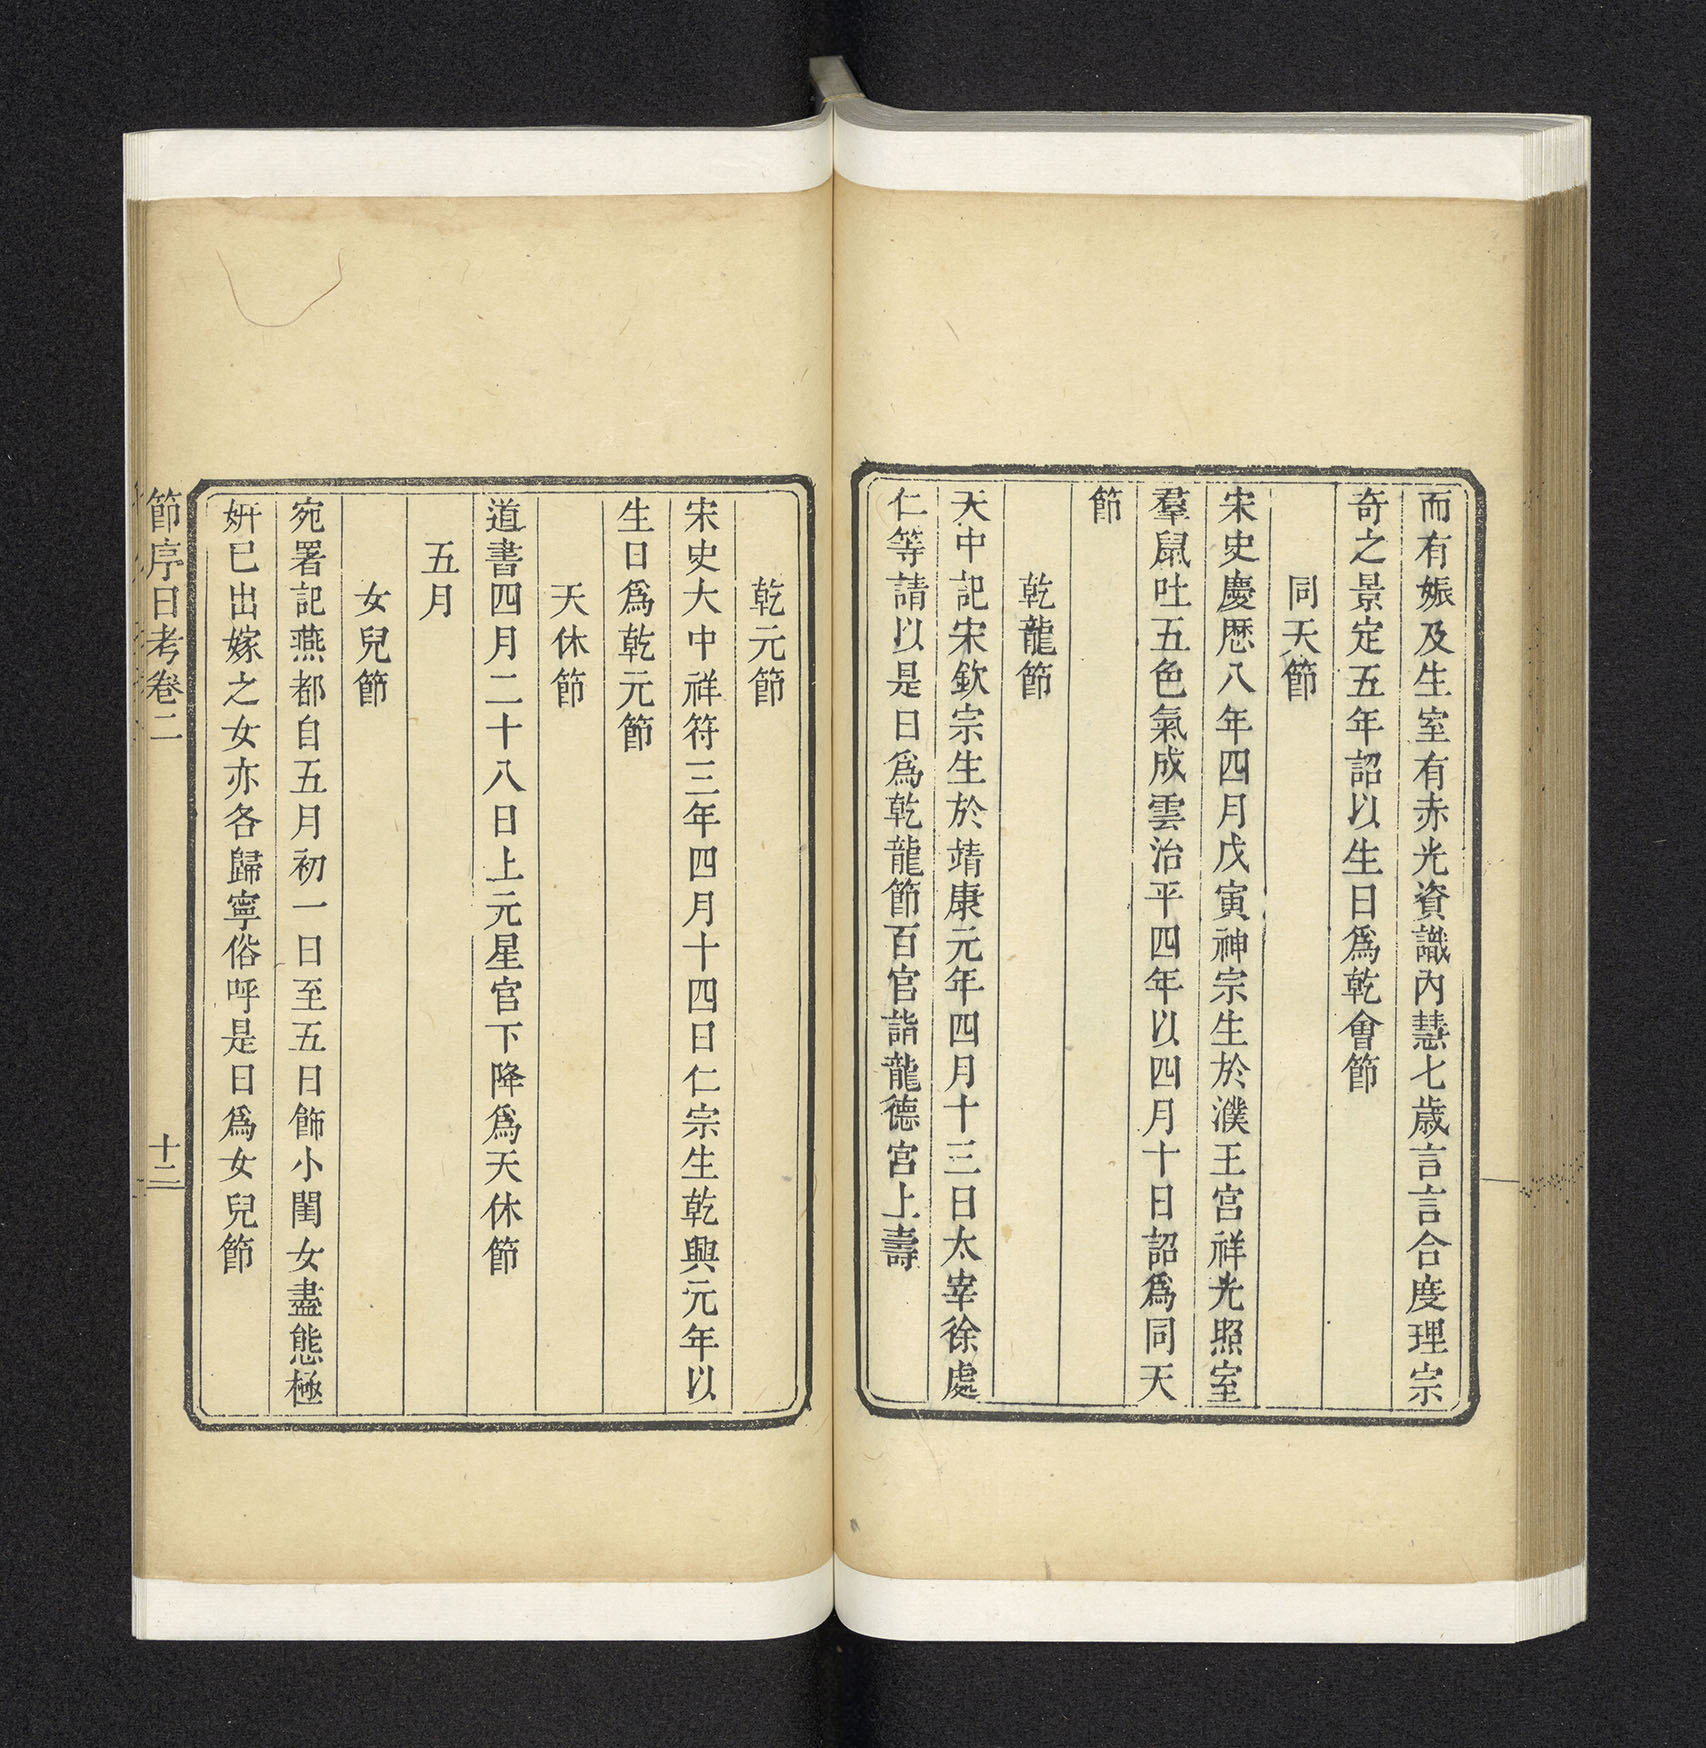 而有娠及生室有赤光資識內慧七歲言言合度理宗
奇之景定五年詔以生日爲乾會節
同天節
宋史慶歷八年四月戊寅神宗生於濮王宮祥光照室
羣鼠吐五色氣成雲治平四年以四月十日詔爲同天
節
乾龍節
天中記宋欽宗生於靖康元年四月十三日太宰徐處
仁等請以是日爲乾龍節百官詣龍德宮上壽
乾元節
宋史大中祥符三年四月十四日仁宗生乾興元年以
生日爲乾元節
天休節
道書四月二十八日上元星官下降爲天休節
五月
女兒節
宛署記燕都自五月初一日至五日飾小閨女盡態極
姸已出嫁之女亦各歸寧俗呼是日爲女兒節
節序日考卷二
十二